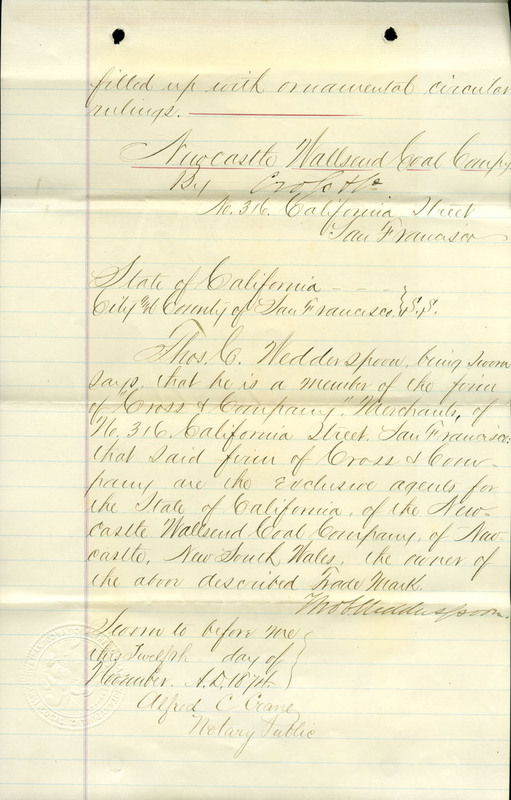 filled up with ornamental circular
rulings.
Newcastle Wallsend Coal Compy
By Cross & Co
No. 316. California Street
San Francisco
State of California
City & County of San Francisco. } S.S.
Thos. C. Wedderspoon, being sworn
says, that he is a member of the firm
of "Cross & Company". Merchants, of
No. 316. California Street. San Francisco:
that said firm of Cross & Com-
pany are the exclusive agents for
the State of California, of the New-
castle Wallsend Coal Company, of New-
castle, New South Wales, the owner of
the above described Trade Mark.
Thos C Wedderspoon.
Sworn to before me
this Twelfth day of
November. A.D. 1874.
Alfred C. Crane
Notary Public